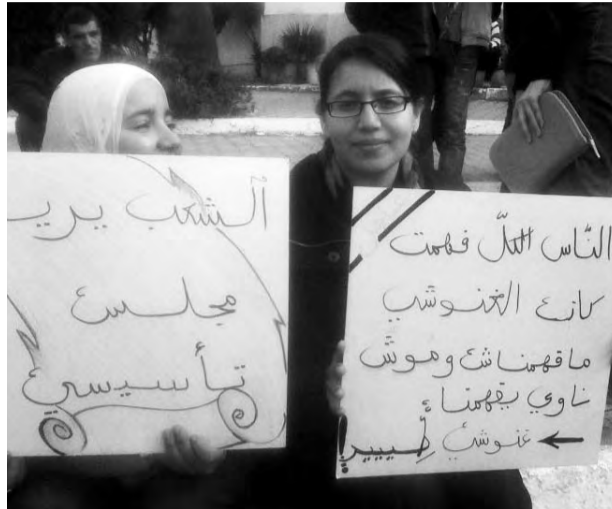 الشعب يريـ
مجلس
تأسيسي
النّاس الكلّ فهمت
كان الغنوشي
ما فهمناش وموش
ناوي يفهمنا
غنوشي طِيييير!